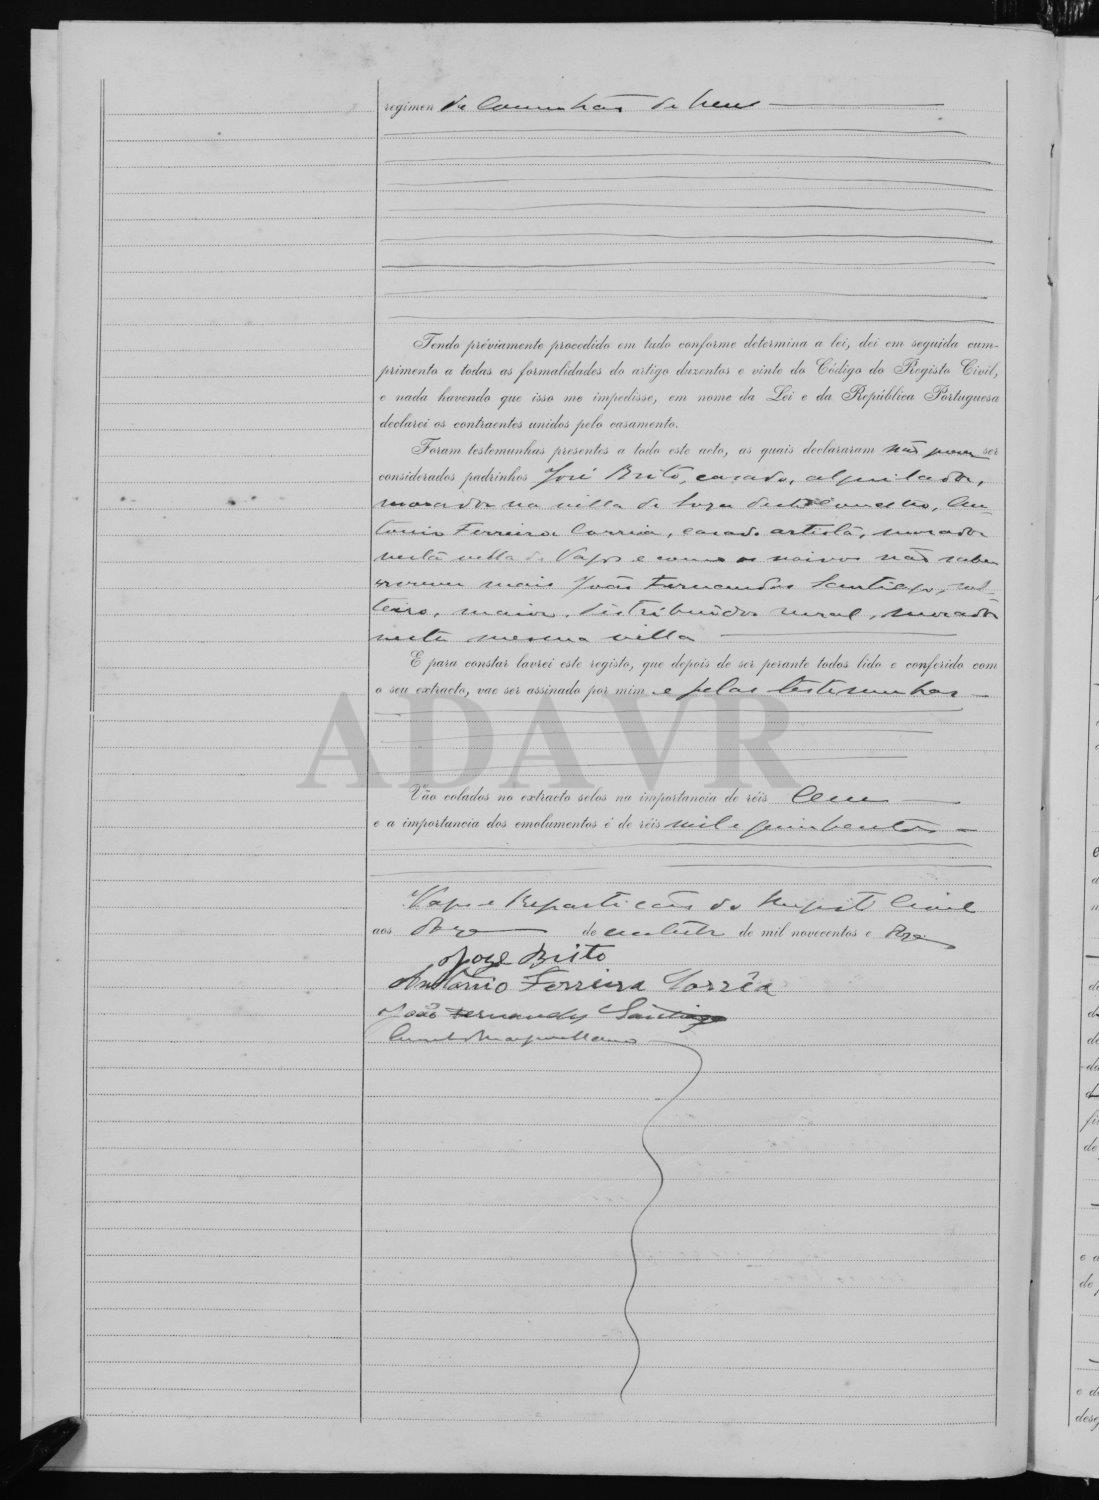 regimen de Comunhão de bens
Tendo préviamente procedido em tudo conforme determina a lei, dei em seguida cum-
primento a todas as formalidades do artigo duzentos e vinte do Código do Registo Civil,
e nada havendo que isso me impedisse, em nome da Lei e da República Portuguesa
declarei os contraentes unidos pelo casamento.
Foram testemunhas presentes a todo este acto, as quais declararam não ser
considerados padrinhos José Brito, casado, alquilador,
morador na villa de Soza deste Concelho, An-
tonio Ferreira Correia, casado, artista, morador
nesta villa de Vagos e como os noivos não sabem
escrever mais João Fernandes Santiago, sol-
teiro, maior, distribuidor rural, morador
nesta mesma villa
E para constar lavrei este registo, que depois de ser perante todos lido e conferido com
o seu extracto, vae ser assinado por mim e pelas testemunhas
ADAVR
Vão colados no extracto selos na importancia de réis Cem
e a importancia dos emolumentos é de réis mil e quinhentos
Vagos e Repartição do Registo Civil
aos Onze de de mil novecentos e Onze
Joze Brito
Antonio Ferreira Corrêa
João Fernandes Santiago